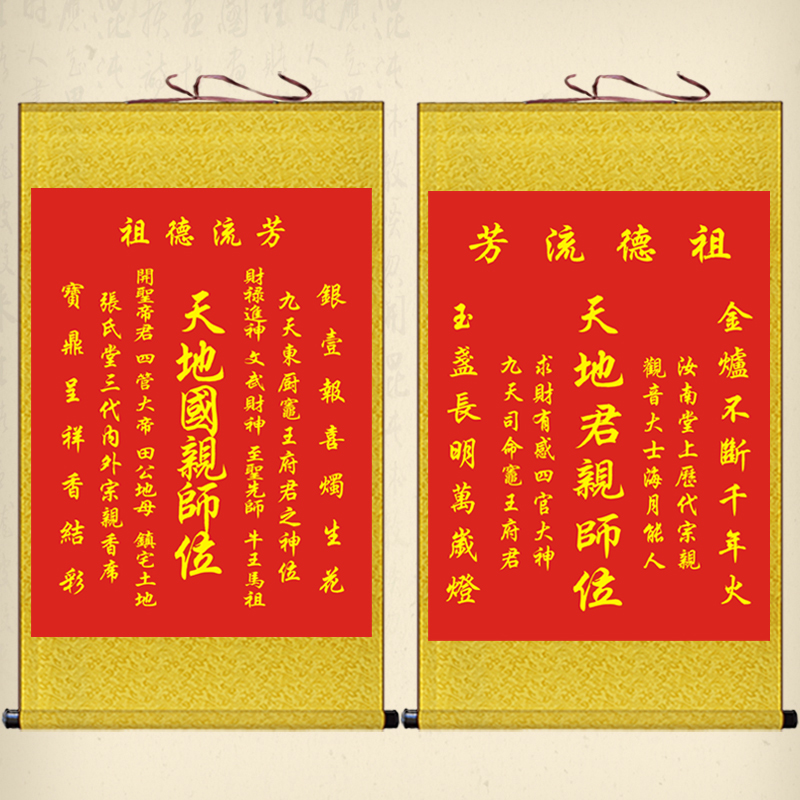 祖德流芳
銀壹報喜燭生花
九天東廚竈王府君之神位
財祿進神 文武財神 至聖先師 牛王馬祖
天地國親師位
開聖帝君 四管大帝 田公地母 鎮宅土地
張氏堂三代內外宗親香席
寶鼎呈祥香結彩
祖德流芳
金爐不斷千年火
汝南堂上歷代宗親
觀音大士海月能人
天地君親師位
求財有感四官大神
九天司命竈王府君
玉盞長明萬歲燈